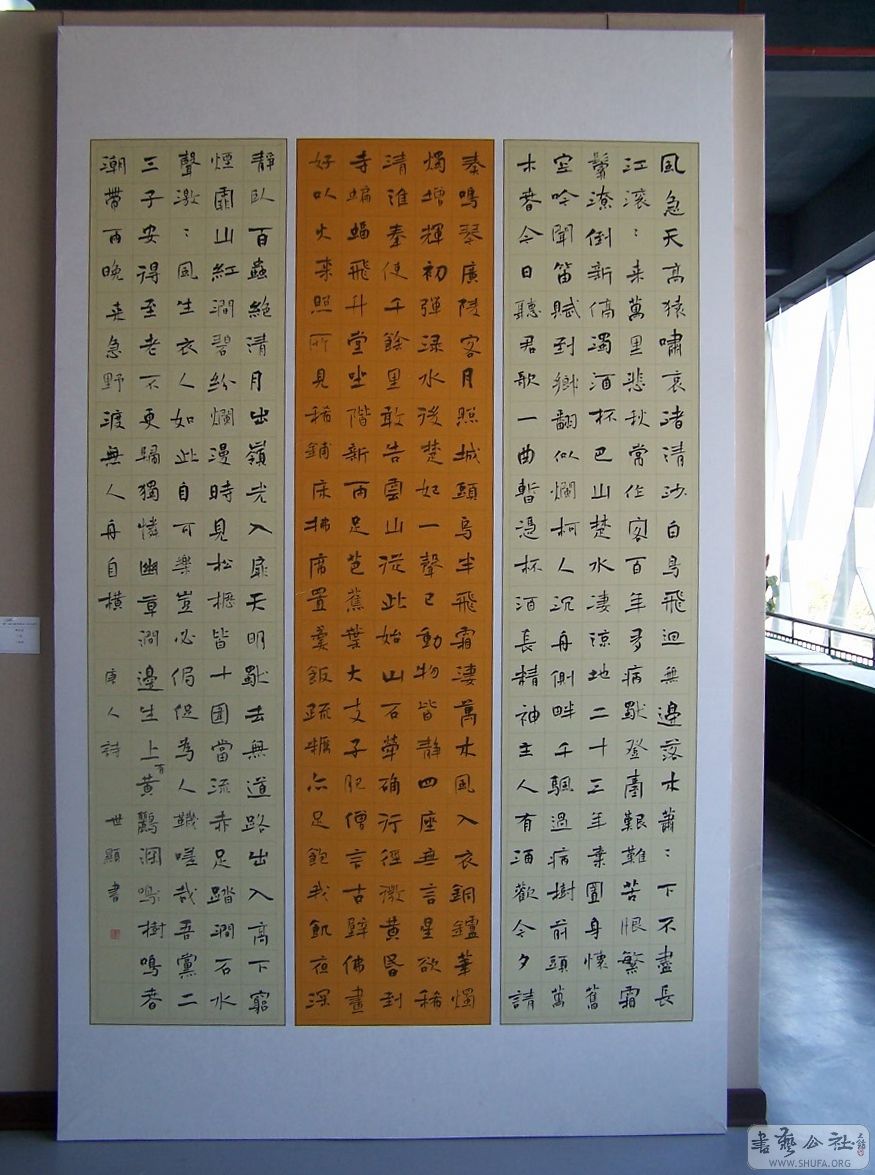 風急天高猿嘯哀渚清沙白鳥飛迴無邊落木蕭：下不盡長
江滾：來萬里悲秋常作客百年多病獨登臺艱難苦恨繁霜
鬢潦倒新停濁酒杯巴山楚水凄涼地二十三年棄置身懷舊
空吟聞笛賦到鄉翻似爛柯人沉舟側畔千帆過病樹前頭萬
木春今日聽君歌一曲暫憑杯酒長精神主人有酒歡今夕請
奏鳴琴廣陵客月照城頭烏半飛霜淒萬木風入衣銅鑪華燭
燭增輝初彈淥水後楚妃一聲已動物皆靜四座無言星欲稀
清淮奉使千餘里敢告雲山從此始山石犖确行徑微黃昏到
寺蝙蝠飛升堂坐階新雨足芭蕉葉大支子肥僧言古壁佛畫
好以火來照所見稀鋪床拂席置羹飯疏糲亦足飽我飢夜深
靜臥百蟲絕清月出嶺光入扉天明獨去無道路出入高下窮
煙霏山紅澗碧紛爛漫時見松櫪皆十圍當流赤足踏澗石水
聲激：風生衣人如此自可樂豈必侷促為人鞿嗟哉吾黨二
三子安得至老不更歸獨憐幽草澗邊生上有黃鸝深鳴樹鳴春
潮帶雨晚來急野渡無人舟自橫 唐人詩 世顯書
書藝公社
WWW.SHUFA.ORG